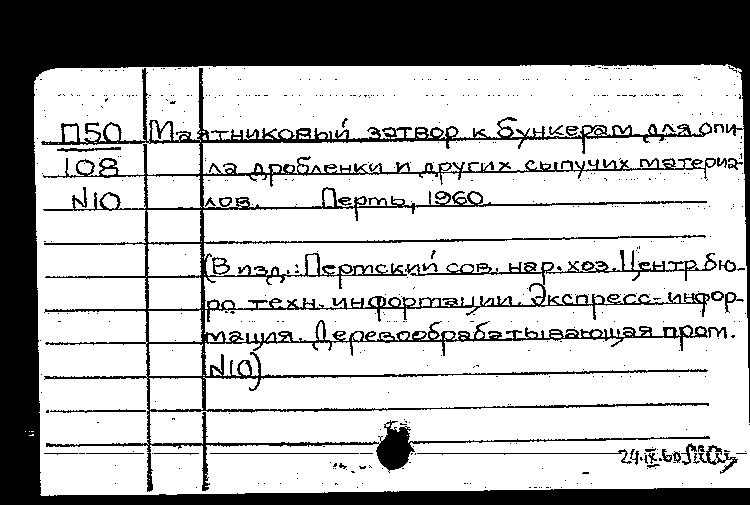 П50 Маятниковый затвор к бункерам для опи-
108 ла дробленки и других сыпучих материа-
N10 лов. Пермь, 1960.
(В изд.: Пермский сов. нар. хоз. Центр. бю-
ро техн. информации. Экспресс-инфор-
мация. Деревообрабатывающая пром.
N10)
24.IX.60